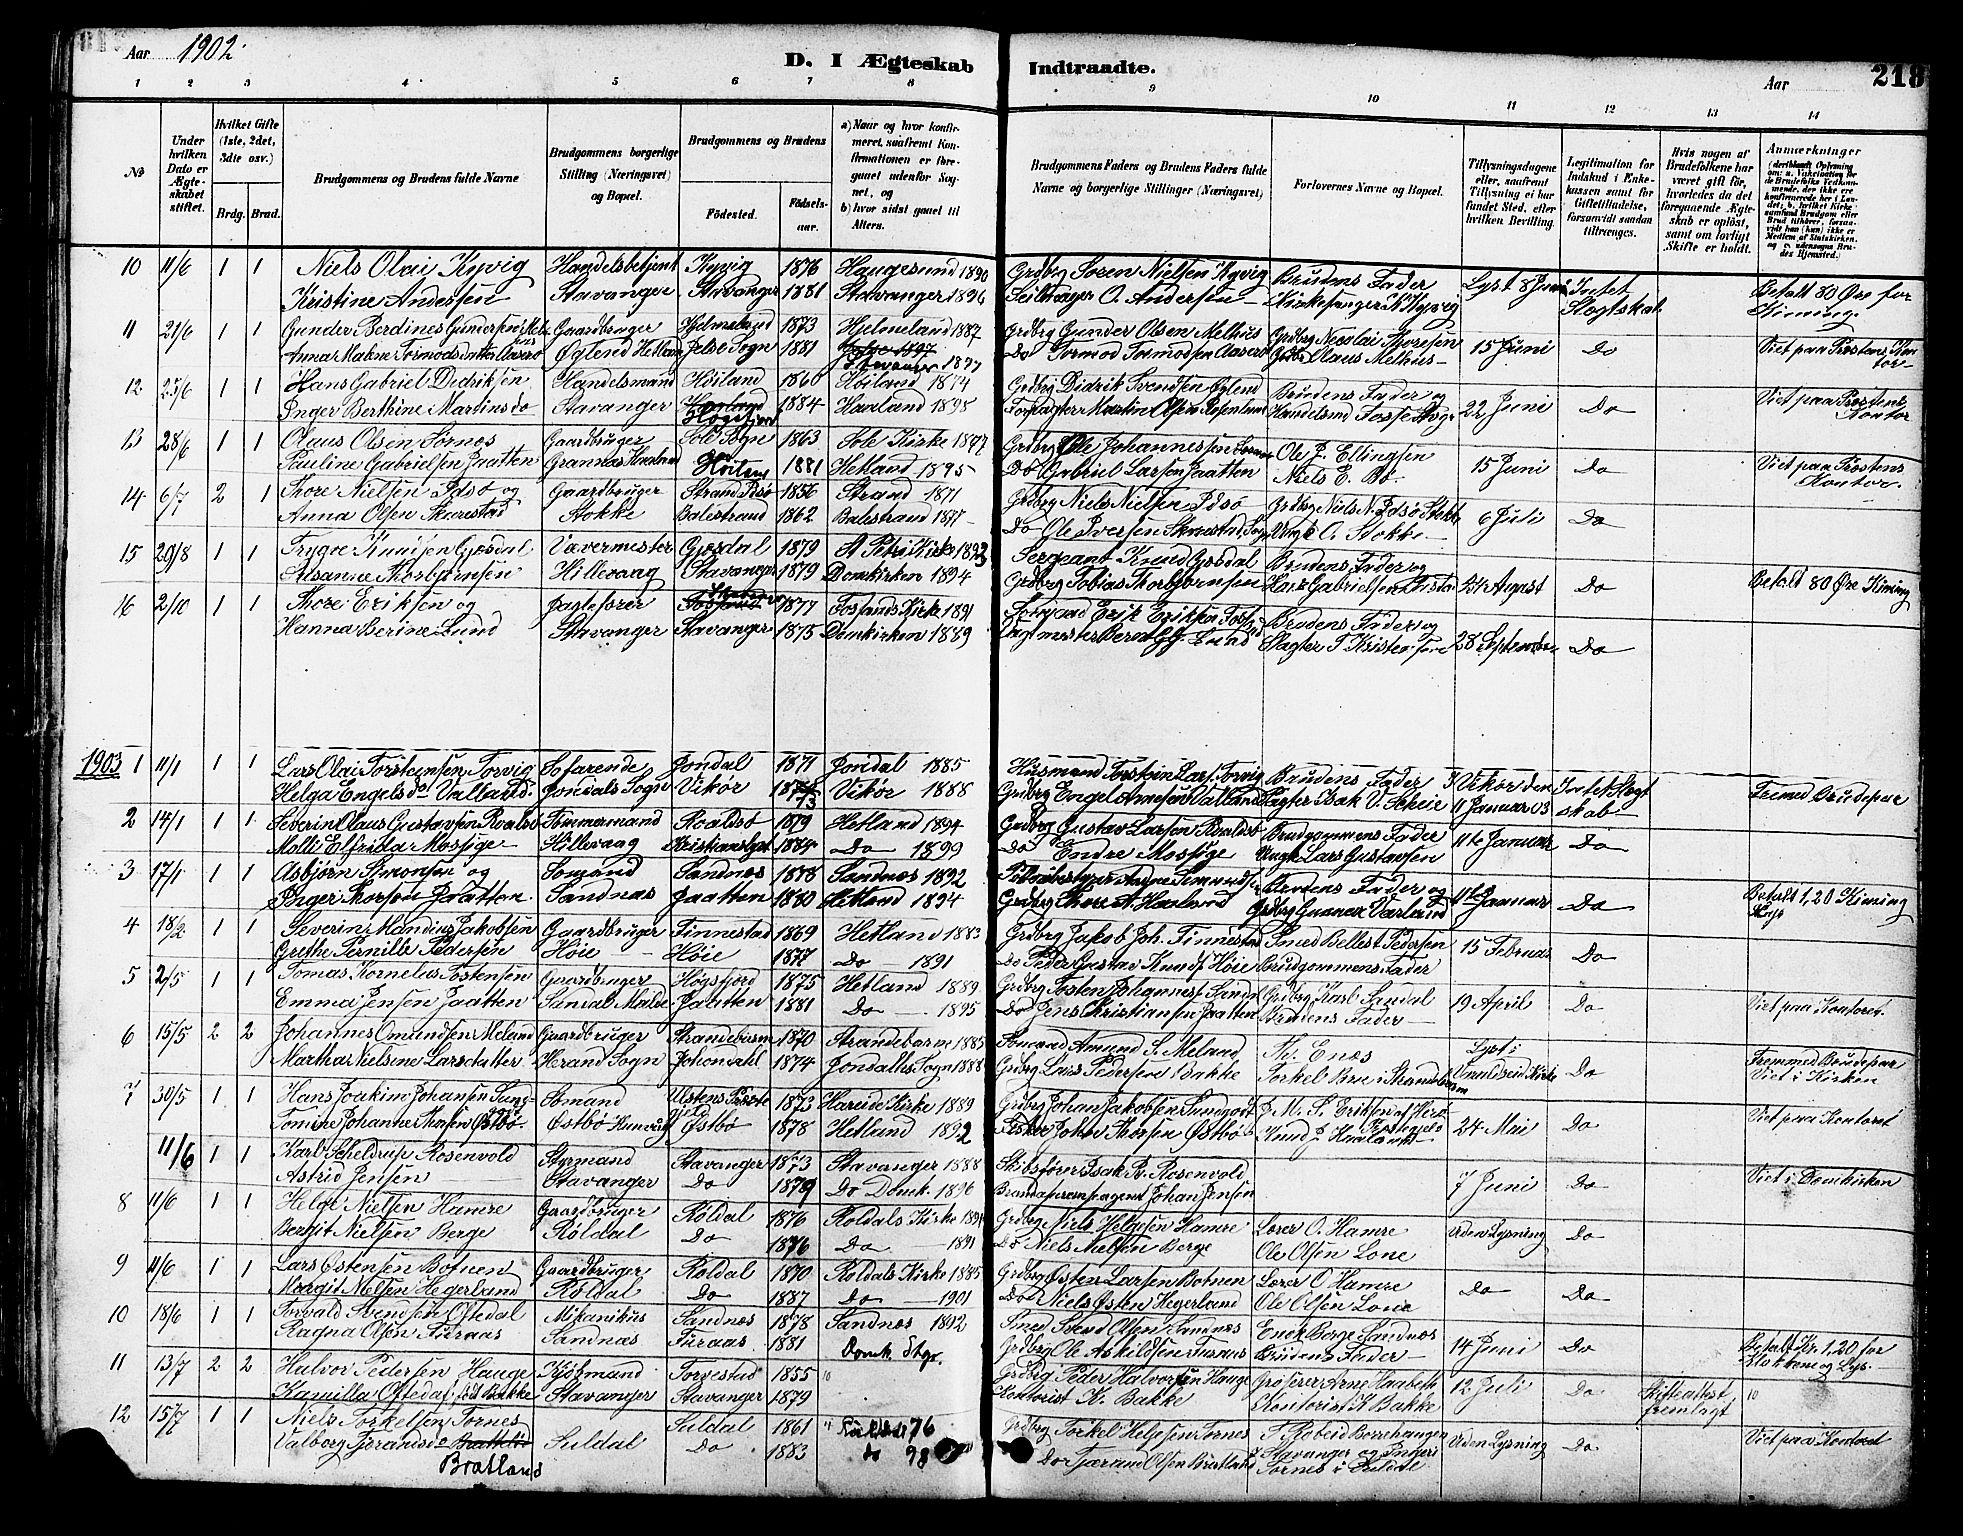 Aar 1902.
D. I Ægteskab Indtraadte.
Aar
218
1 2 3 4 5 6 7 8 9 10 11 12 13 14
No
Under hvilken Dato er Ægteskabet stiftet.
Hvilket Gifte (1ste, 2det, 3die osv.)
Brdg. Brud.
Brudgommens og Brudens fulde Navne
Brudgommens borgerlige Stilling (Næringsvei) og Bopæl.
Brudgommens og Brudens
Fødested.
Fødselsaar.
a) Naar og hvor konfirmeret, saafremt Konfirmationen er foregaaet udenfor Sognet, og
b) hvor sidst gaaet til Alters.
Brudgommens Faders og Brudens Faders fulde Navne og borgerlige Stillinger (Næringsvei)
Forlovernes Navne og Bopæl.
Tillysningsdagene eller, saafremt Tillysning ei har fundet Sted, efter hvilken Bevilling.
Legitimation for Indskud i Enkekassen samt for Giftetilladelse, forsaavidt saadan tiltrænges.
Hvis nogen af Brudefolkene har været gift før, hvorledes da det foregaaende Ægteskab er opløst, samt om lovligt Skifte er holdt.
Anmærkninger
10 11/6 1 1 Niels Olai Kyvig Handelsbetjent Kyvig 1876 Haugesund 1890 Grdbrg Søren Nielsen Kyvig Brudens Fader Lyst 8 Juni Intet Betalt 80 Øre for
Kristine Andersen Stavanger Stavanger 1881 Stavanger 1896 Seilmager O. Andersen Kirkesanger N Kyvig Slegtskab Kiming.
11 21/6 1 1 Gunder Berdines Gundersen Gaardbruger Hjelmeland 1873 Hjelmeland 1887 Grdbrg Gunder Olsen Melhus Grdbrg Nicolai Thoresen 15 Juni Do Viet paa Prostens Kontor
Anna Malene Tormodsdatter Aasen Øglend Hetland Jelse Sogn 1881 Stavanger 1897 Do Tormod Tormodsen Olaus Melhus
12 25/6 1 1 Hans Gabriel Dedriksen Handelsmand Høiland 1860 Høiland 1874 Grdbrg Didrik Svendsen Øglend Brudens Fader og 22 Juni Do Viet paa Prostens
Inger Berthine Martinsdo Stavanger Høgsfjord 1884 Haaland 1895 Forpagter Martin Olsen Handelsmd Kontor
13 28/6 1 1 Olaus Olsen Sørnes Gaardbruger Sole Sogn 1863 Sole Kirke 1877 Grdbrg Ole Johannessen Sørnes Ole J. Ellingsen 15 Juni Do Viet paa Prostens
Pauline Gabrielsen Jaatten Grannes Haaland 1881 Hetland 1895 Do Gabriel Larsen Jaatten Niels E. Bø Kontor.
14 6/7 2 1 Thore Nielsen Idsø og Gaardbruger Strand Idsø 1856 Strand 1871 Grdbrg Niels Nielsen Idsø Grdbrg Niels N. Idsø 6 Juli Do
Anna Olsen Skarestad Stokke Balestrand 1862 Balestrand 1877 Do Ole Iversen O. Stokke
15 20/8 1 1 Trygve Knudsen Gjesdal Vævermester Gjesdal 1879 St Petri Kirke 1893 Sergeant Knud Gjesdal Brudens Fader og 24 August Do Betalt 80 Øre Kiming
Susanne Thorbjørnsen Hillevaag Stavanger 1879 Domkirken 1894 Grdbrg Tobias Thorbjørnsen Hans Gabrielsen
16 2/10 1 1 Thore Eriksen og Jagtefører 1877 Fossands Kirke 1891 Erik Eriksen Brudens Fader og 28 September Do
Hanna Berine Lund Stavanger Stavanger 1875 Domkirken 1889 Lund Slagter T Kristoffersen
1903 1 11/1 1 1 Lars Olai Torsteinsen Torvig Søfarende Jondal 1871 Jondal 1885 Husmand Torstein Lars. Torvig Brudens Fader I Vikør den Intet Slegt
Helga Engelsdo Valland Jondals Sogn Vikør 1873 Vikør 1888 Grdbrg Engel Valland Isak V. Skeie 11 Januar 03 skab Fremmed Brudepar
2 14/1 1 1 Severin Olaus Gustavsen Roaldsø Tømmermand Roaldsø 1879 Hetland 1894 Grdbrg Gustav Larsen Roaldsø Brudgommens Fader 11te Januar Do
Malli Elfrida Mossige Hillevaag Kristianslyst 1884 Do 1899 Do Endre Mossige Ungk Lars Gustavsen
3 17/1 1 1 Asbjørn Simonsen og Sømand Sandnæs 1878 Sandnæs 1892 Brudens Fader og 11te Januar Do Betalt 1,20 Kiming
Inger Thorsen Jaatten Sandnæs Jaatten 1880 Hetland 1894 Grdbrg Thore A. Grdbrg Gunnar Varland Lys
4 18/2 1 1 Severin Mandius Jakobsen Gaardbruger Finnestad 1869 Hetland 1883 Grdbrg Jakob Joh. Finnestad Smed Bellest Pedersen 15 Februar Do
Grethe Pernille Pedersen Høie Høie 1877 Do 1891 Do Peder Gustav Knuds Høie Brudgommens Fader
5 2/5 1 1 Tomas Kornelius Tostensen Gaardbruger Høgsfjord 1875 Hetland 1889 Grdbrg Tosten Johannes Sandal Grdbrg Karl Sandal 19 April Do
Emma Jensen Jaatten Sandal Malde Jaatten 1881 Do 1895 Do Jens Christiansen Jaatten Brudens Fader Viet paa Kontoret.
6 15/5 2 2 Johannes Omundsen Meland Gaardbruger Strandebarm 1870 Strandebarm 1885 Amund S. Meland Th. Enæs Lyst i Do Fremmed Brudepar
Martha Nielsine Larsdatter Herand Sogn Johondahl 1874 Jondalls Sogn 1888 Grdbrg Lars Pedersen Bakke Torkel Bru i Strandebarm Viet i Kirken
7 30/5 1 1 Hans Joakim Johansen Sund Sømand 1873 Hareide Kirke 1889 Grdbrg Johan Jakobsen 24 Mai Do Viet paa Kontoret
Tomine Johanne Thorsen Østbø Østbø Hundvaag Østbø 1878 Hetland 1892 Fisker John Thorsen Østbø Knud J Haaland
11/6 1 1 Karl Scheldrup Rosenvold Styrmand Stavanger 1873 Stavanger 1888 Skibsfører Isak R. Rosenvold 7 Juni Do Viet i Domkirken
Astrid Jensen Stavanger Do 1879 Do Domk. 1896 Johan Jensen
8 11/6 1 1 Helge Nielsen Hamre Gaardbruger Røldal 1876 Roldals Kirke 1891 Grdbrg Niels Helgesen Hamre Lærer O. Hamre Uden Lysning Do
Bergit Nielsen Berge Røldal Do 1876 Do 1891 Do Niels Nielsen Berge Ole Olsen Lone
9 11/6 1 1 Lars Østensen Botnen Gaardbruger Røldal 1870 Roldals Kirke 1885 Grdbrg Østen Larsen Botnen Lærer O Hamre Do Do
Margit Nielsen Hegerland Røldal Do 1887 Do 1901 Do Niels Østen Hegerland Ole Olsen Lone
10 18/6 1 1 Torvald Svendsen Oftedal Mekanikus Sandnæs 1878 Sandnæs 1892 Smed Svend Olsen Sandnæs Enok Berge Sandnæs 14 Juni Do Betalt Kr. 1,20 for
Ragna Olsen Furaas Sandnæs Furaas 1881 Domk. Stgr. Grdbrg Ole Askildsen Furaas Brudens Fader Klokkene og Lys
11 13/7 2 2 Halvor Pedersen Hauge Kjøbmand Torvestad 1855 Grdbrg Peder Halvorsen Hauge Grosserer Arne Haabeth 12 Juli Do Skifteattest
Kamilla Oftedal, født Bakke Stavanger Stavanger 1879 Kontorist K. Bakke Kontorist K Bakke fremlagt
12 15/7 1 1 Niels Torkelsen Tornes Suldal Suldal 1861 Suldal 76 Grdbrg Torkel Helgesen Tornes Uden Lysning Do Viet paa Kontoret
Valborg Tjerandsdo Bratland Do 1883 do 98 Do Tjerand Olsen Bratland Stavanger og Ingeri Tornes i Suldal